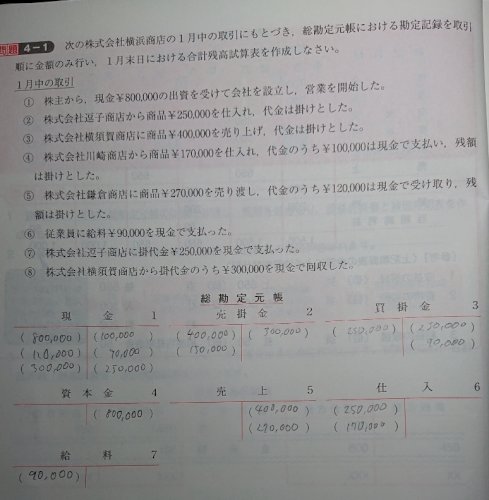 問題 4-1 次の株式会社横浜商店の1月中の取引にもとづき，総勘定元帳における勘定記録を取引
順に金額のみ行い，1月末日における合計残高試算表を作成しなさい。
1月中の取引
① 株主から，現金¥800,000の出資を受けて会社を設立し，営業を開始した。
② 株式会社逗子商店から商品¥250,000を仕入れ，代金は掛けとした。
③ 株式会社横須賀商店に商品¥400,000を売り上げ，代金は掛けとした。
④ 株式会社川崎商店から商品¥170,000を仕入れ，代金のうち¥100,000は現金で支払い，残額
は掛けとした。
⑤ 株式会社鎌倉商店に商品¥270,000を売り渡し，代金のうち¥120,000は現金で受け取り，残
額は掛けとした。
⑥ 従業員に給料¥90,000を現金で支払った。
⑦ 株式会社逗子商店に掛代金¥250,000を現金で支払った。
⑧ 株式会社横須賀商店から掛代金のうち¥300,000を現金で回収した。
総勘定元帳
現金 1 売掛金 2 買掛金 3
(800,000) (100,000) (400,000) (300,000) (250,000) (250,000)
(120,000) (90,000) (150,000) (70,000)
(300,000) (250,000)
資本金 4 売上 5 仕入 6
(800,000) (400,000) (250,000)
(270,000) (170,000)
給料 7
(90,000)